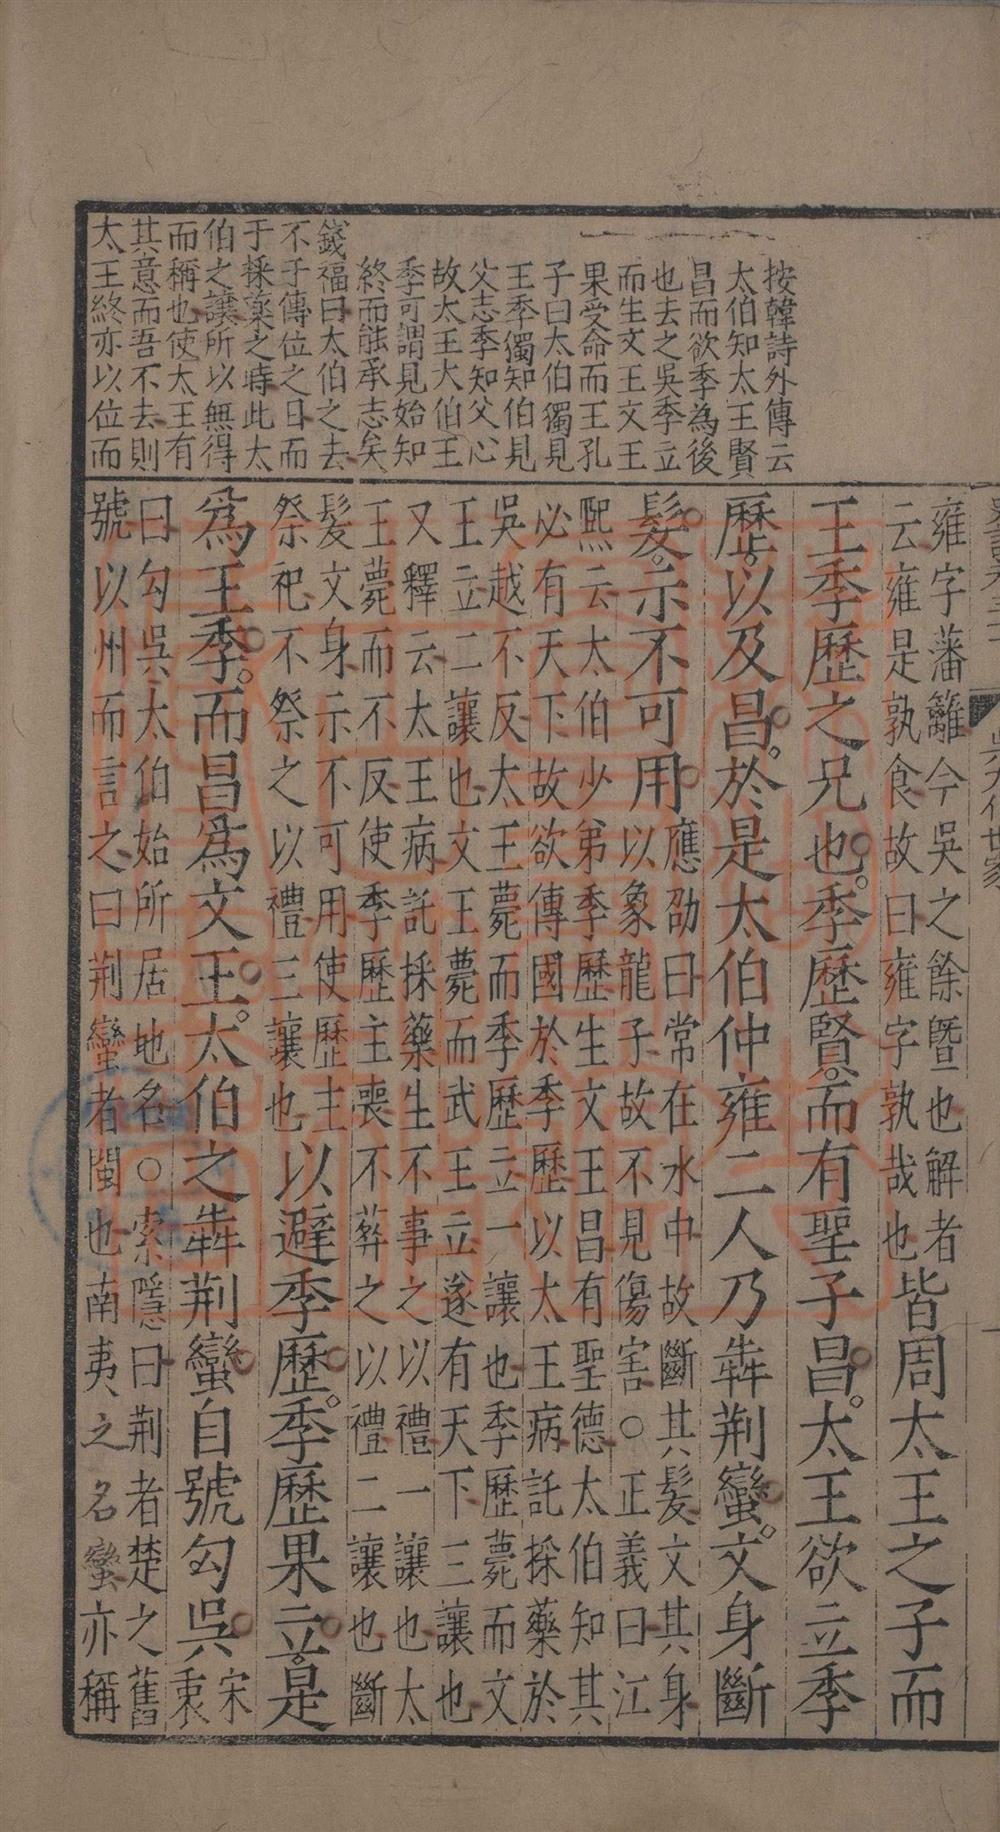 按韓詩外傳云
太伯知太王賢
昌而欲季為後
也去之吳季立
而生文王文王
果受命而王孔
子曰太伯獨見
王季獨知伯見
父志季知父心
故太王太伯王
季可謂見始知
終而能承志矣
錢福曰太伯之去
不于傳位之日而
于採藥之時此太
伯之讓所以無得
而稱也使太王有
其意而吾不去則
太王終亦以位而
雍字藩籬今吳之餘曁也解者
云雍是孰食故曰雍字孰哉也
皆周太王之子而
王季歷之兄也季歷賢而有聖子昌太王欲立季
歷以及昌於是太伯仲雍二人乃犇荆蠻文身斷
髮示不可用
應劭曰常在水中故斷其髮文其身
以象龍子故不見傷害○正義曰江
熙云太伯少弟季歷生文王昌有聖德太伯知其
必有天下故欲傳國於季歷以太王病託採藥於
吳越不反太王薨而季歷立一讓也季歷薨而文
王立二讓也文王薨而武王立遂有天下三讓也
又釋云太王病託採藥生不事之以禮一讓也太
王薨而不反使季歷主喪不葬之以禮二讓也斷
髮文身示不可用使歷主
祭祀不祭之以禮三讓也
以避季歷季歷果立是
爲王季而昌爲文王太伯之犇荆蠻自號勾吳
宋
衷
曰勾吳太伯始所居地名○索隱曰荆者楚之舊
號以州而言之曰荆蠻者閩也南夷之名蠻亦稱